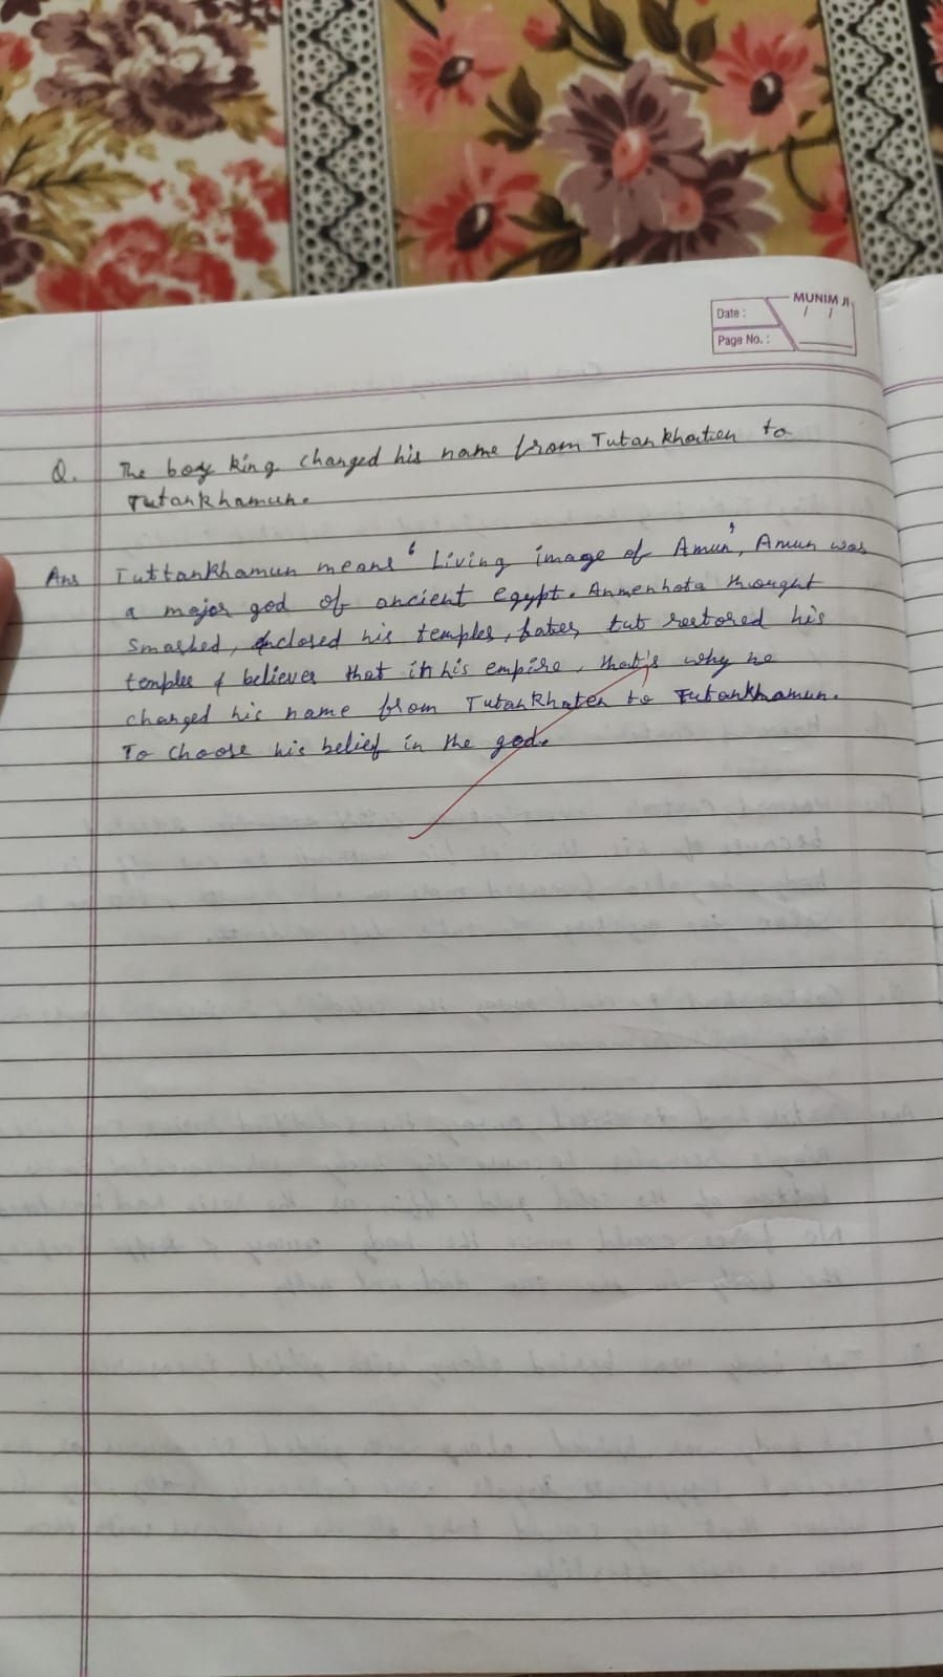 MUNIM JI
Date : / /
Page No. :
Q. The boy king changed his name from Tutankhaten to
Tutankhamun.
Ans Tuttankhamun means ‘Living image of Amun’, Amun was
a major god of ancient egypt. Anmenhota thought
smashed, enclosed his temples, tut restored his
temples & believes that in his empire, that's why he
changed his name from Tutankhaten to Tutankhamun.
To choose his belief in the god.